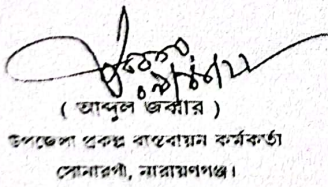 ( আব্দুল জব্বার )
উপজেলা প্রকল্প বাস্তবায়ন কর্মকর্তা
সোনারগাঁ, নারায়ণগঞ্জ।